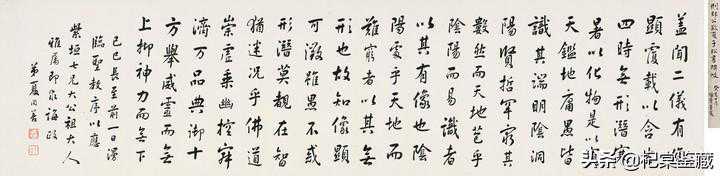 蓋聞二儀有像
顯覆載以含生
四時無形潛寒
暑以化物是以窺
天鑑地庸愚皆
識其端明陰洞
陽賢哲罕窮其
數然而天地苞乎
陰陽而易識者
以其有像也陰
陽處乎天地而
難窮者以其無
形也故知像顯
可徵雖愚不惑
形潛莫覩在智
猶迷況乎佛道
崇虛乘幽控寂
濟萬品典御十
方舉威靈而無
上抑神力而無下
己巳長至前一日漫
臨聖教序以應
紫垣七兄大公祖大人
雅屬即乞誨政
弟夏同善
头条 @祀棠鉴藏